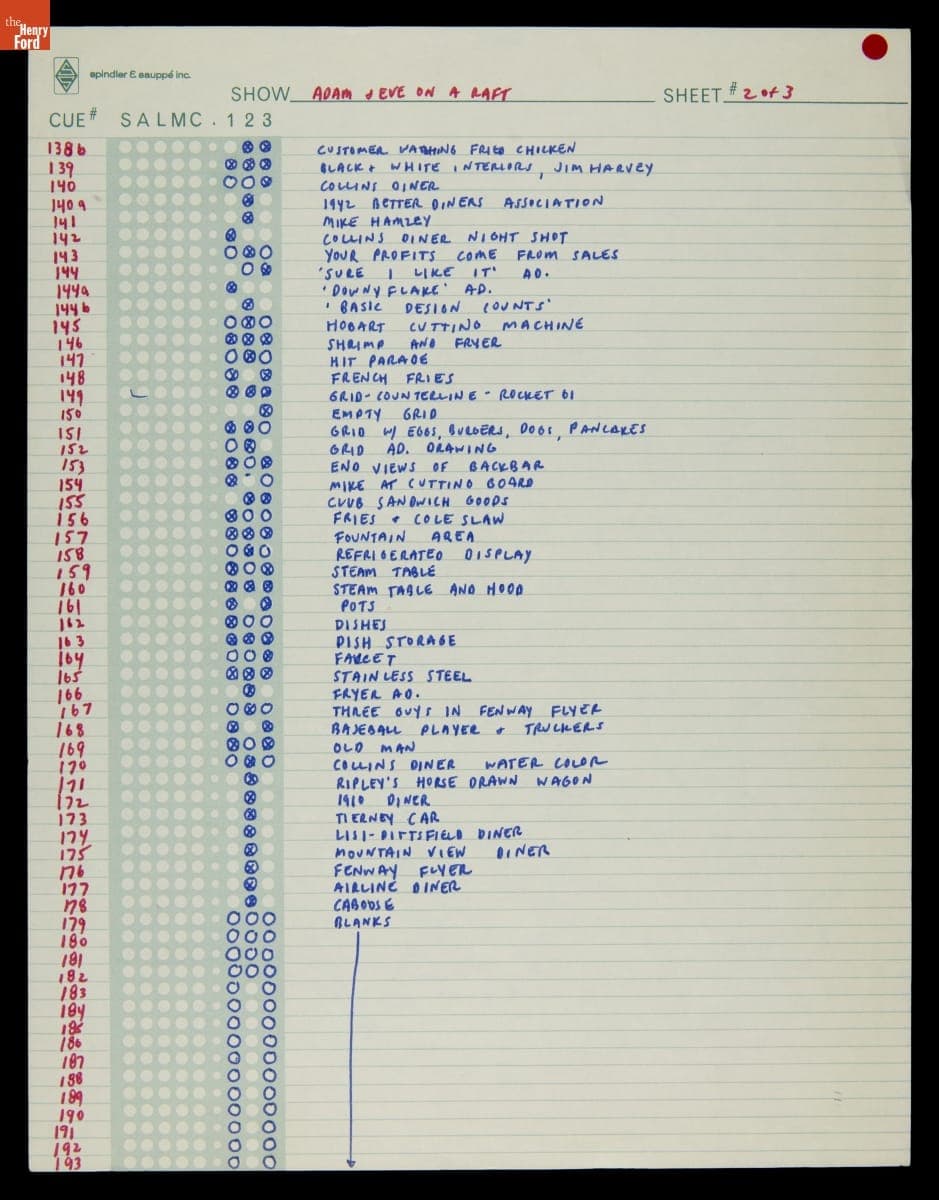 the Henry Ford
spindler & sauppé inc.
SHOW ADAM & EVE ON A RAFT SHEET # 2 of 3
CUE # S A L M C . 1 2 3
138b CUSTOMER WATHING FRIED CHICKEN
139 BLACK + WHITE INTERIORS, JIM HARVEY
140 COLLINS DINER
140a 1942 BETTER DINERS ASSOCIATION
141 MIKE HAMZEY
142 COLLINS DINER NIGHT SHOT
143 YOUR PROFITS COME FROM SALES
144 'SURE I LIKE IT' AD.
144a 'DOWNY FLAKE' AD.
144b 'BASIC DESIGN COUNTS'
145 HOBART CUTTING MACHINE
146 SHRIMP AND FRYER
147 HIT PARADE
148 FRENCH FRIES
149 GRID-COUNTERLINE - ROCKET 61
150 EMPTY GRID
151 GRID W/ EGGS, BURGERS, DOGS, PANCAKES
152 GRID AD. DRAWING
153 END VIEWS OF BACKBAR
154 MIKE AT CUTTING BOARD
155 CLUB SANDWICH GOODS
156 FRIES + COLE SLAW
157 FOUNTAIN AREA
158 REFRIGERATED DISPLAY
159 STEAM TABLE
160 STEAM TABLE AND HOOD
161 POTS
162 DISHES
163 DISH STORAGE
164 FAUCET
165 STAINLESS STEEL
166 FRYER AD.
167 THREE GUYS IN FENWAY FLYER
168 BASEBALL PLAYER + TRUCKERS
169 OLD MAN
170 COLLINS DINER WATER COLOR
171 RIPLEY'S HORSE DRAWN WAGON
172 1910 DINER
173 TIERNEY CAR
174 LISI-PITTSFIELD DINER
175 MOUNTAIN VIEW DINER
176 FENWAY FLYER
177 AIRLINE DINER
178 CABOOSE
179 BLANKS
180
181
182
183
184
185
186
187
188
189
190
191
192
193